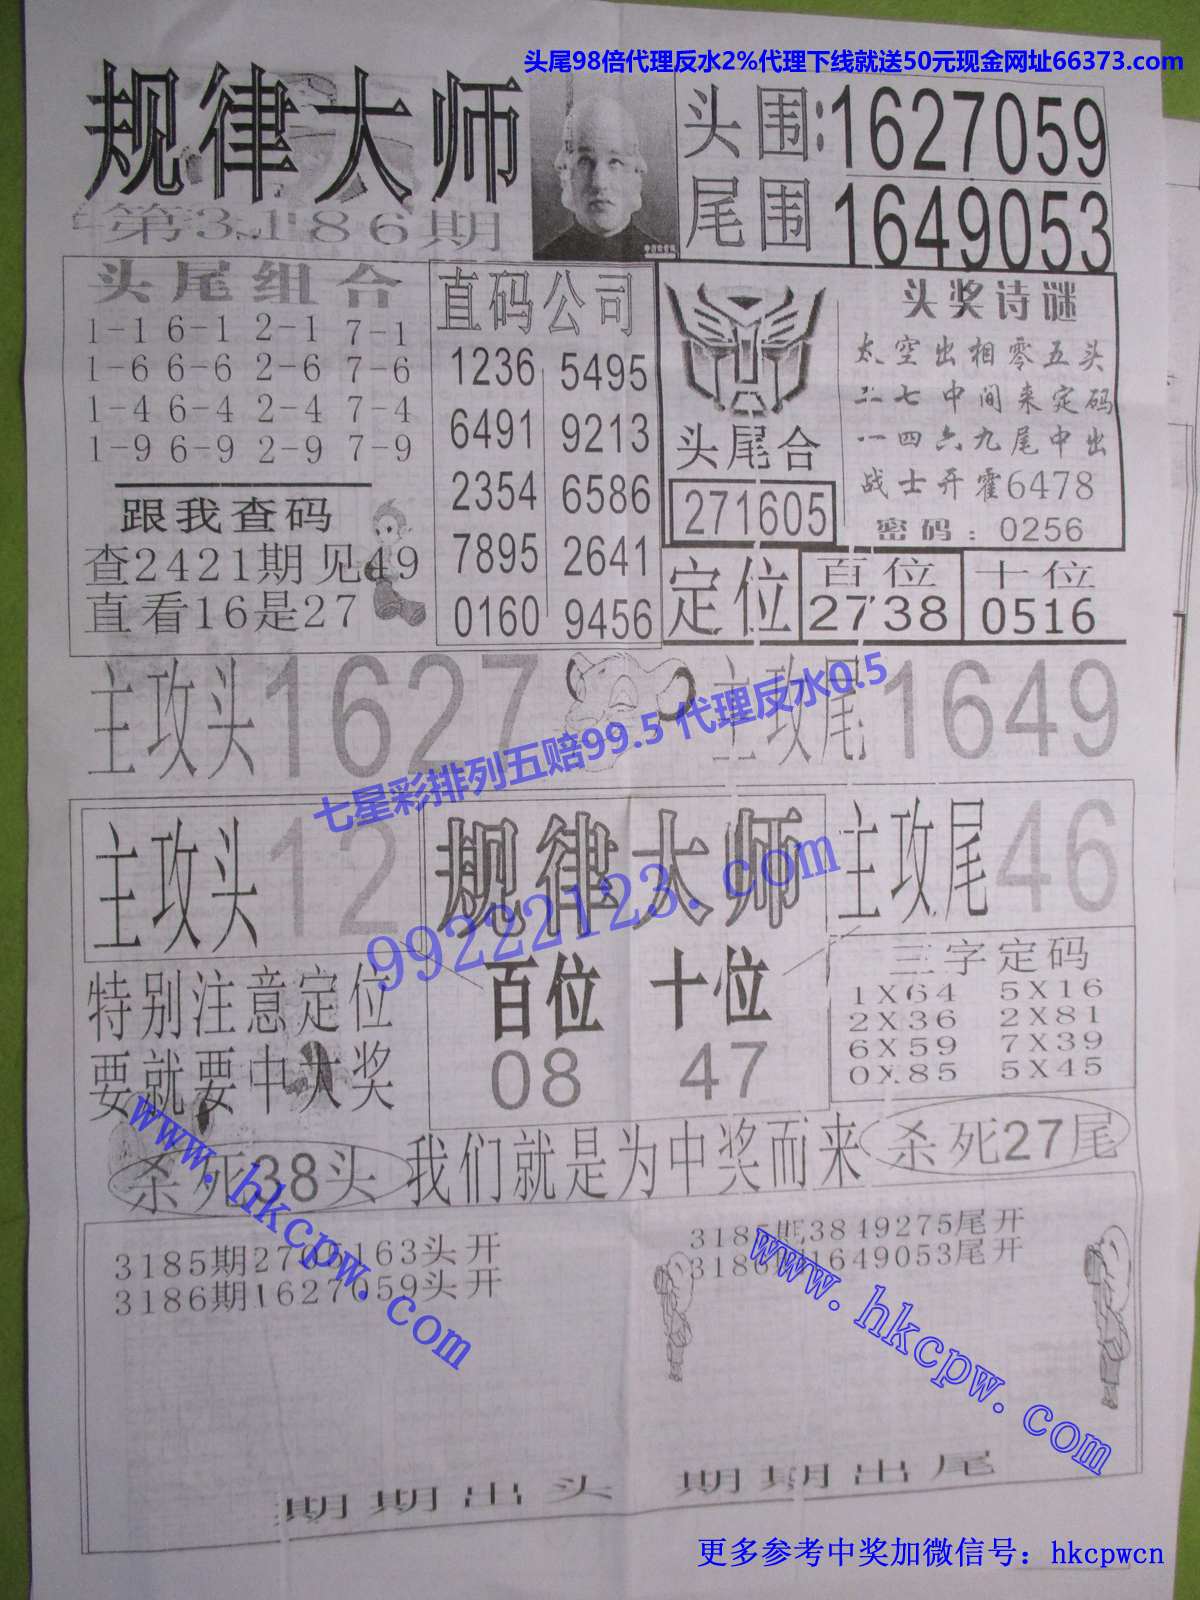 头尾98倍代理反水2%代理下线就送50元现金网址66373.com
规律大师
第3186期
头围:1627059
尾围1649053
头尾组合
1-1 6-1 2-1 7-1
1-6 6-6 2-6 7-6
1-4 6-4 2-4 7-4
1-9 6-9 2-9 7-9
跟我查码
查2421期见49
直看16是27
直码公司
1236 5495
6491 9213
2354 6586
7895 2641
0160 9456
头尾合
271605
头奖诗谜
太空出相零五头
二七中间来定码
一四六九尾中出
战士开霍6478
密码:0256
定位
百位
2738
十位
0516
主攻头1627
主攻尾1649
七星彩排列五赔99.5 代理反水0.5
主攻头12
规律大师
主攻尾46
99222123.com
特别注意定位
要就要中大奖
百位 十位
08 47
三字定码
1X64 5X16
2X36 2X81
6X59 7X39
0X85 5X45
杀死38头
我们就是为中奖而来
杀死27尾
www.hkcpw.com
3185期2705163头开
3186期1627059头开
3185期3849275尾开
3186期1649053尾开
www.hkcpw.com
期期出头 期期出尾
更多参考中奖加微信号：hkcpwcn